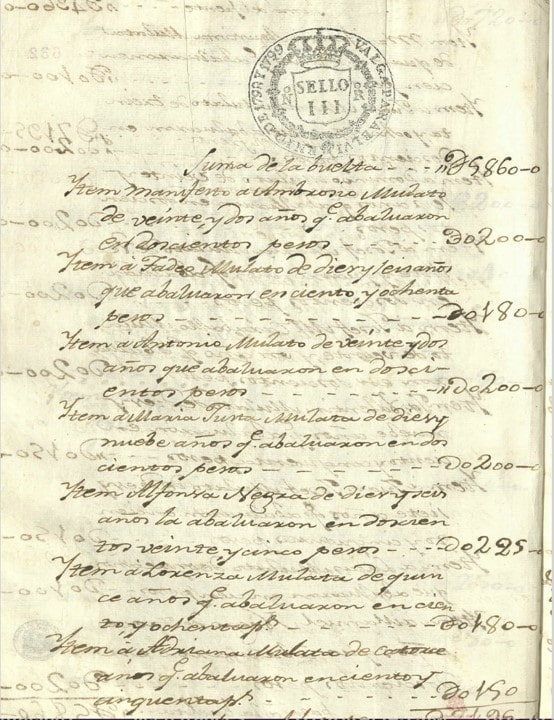 VALGA PARA EL VIENIO DE 1798 Y 1799
SELLO
III
N R
Suma de la buelta - - - "D5860-0
Item manifesto â Ambrosio Mulato
de veinte, y dos años q.^e abaluaron
en doscientos pesos - - - - - D0200-0
Item â Tadeo Mulato de diez y seis años
que abaluaron en ciento, y ochenta
pesos - - - - - - - - - D0180-0
Item â Antonio Mulato de veinte y dos
años que abaluaron en dosci-
entos pesos - - - - - - "D0200-0
Item â Maria Mulata de diez y
nuebe años q.^e abaluaron en dos
cientos pesos - - - - - - D0200-0
Item Alfonsa Negra de diez y seis
años la abaluaron en doscien
tos veinte y cinco pesos - - - D0225-0
Item â Lorenza Mulata de quin
ce años q.^e abaluaron en cien
to, y ochenta p.^s - - - - - D0180-0
Item â Adriana Mulata de catorce
años q.^e abaluaron en ciento y
cinquenta p.^s - - - - - D0150